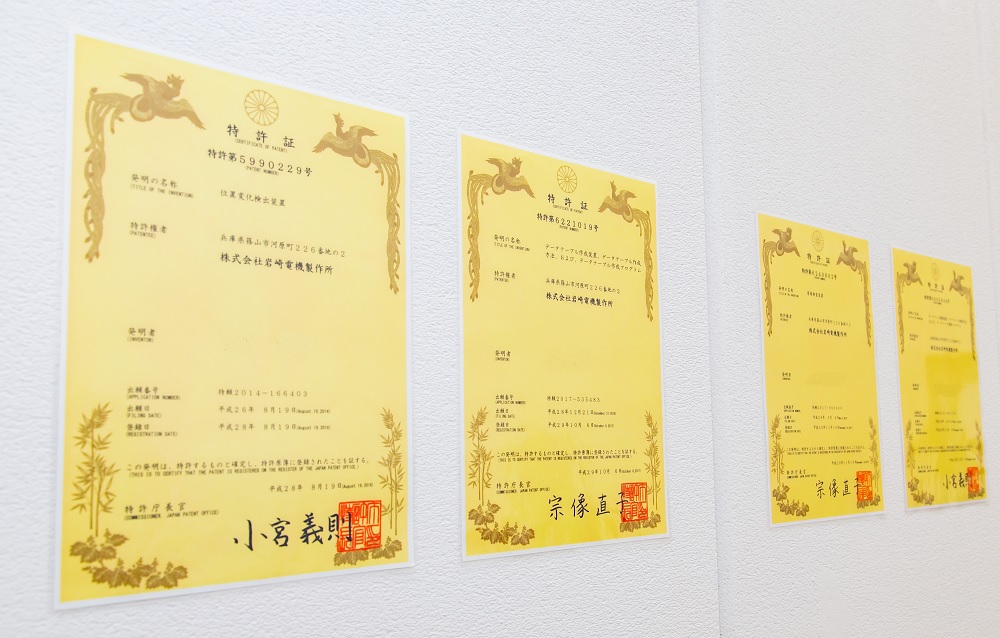 特許証
(CERTIFICATE OF PATENT)
特許第5990229号
(PATENT NUMBER)
発明の名称
(TITLE OF THE INVENTION)
位置変化検出装置
特許権者
(PATENTEE)
兵庫県篠山市河原町226番地の2
株式会社岩崎電機製作所
発明者
(INVENTOR)
出願番号
(APPLICATION NUMBER)
特願2014-166403
出願日
(FILING DATE)
平成26年 8月19日(August 19,2014)
登録日
(REGISTRATION DATE)
平成28年 8月19日(August 19,2016)
この発明は、特許するものと確定し、特許原簿に登録されたことを証する。
(THIS IS TO CERTIFY THAT THE PATENT IS REGISTERED ON THE REGISTER OF THE JAPAN PATENT OFFICE.)
平成28年 8月19日(August 19,2016)
特許庁長官
(COMMISSIONER, JAPAN PATENT OFFICE)
小宮義則
特許証
(CERTIFICATE OF PATENT)
特許第6221019号
(PATENT NUMBER)
発明の名称
(TITLE OF THE INVENTION)
データテーブル作成装置、データテーブル作成
方法、および、データテーブル作成プログラム
特許権者
(PATENTEE)
兵庫県篠山市河原町226番地の2
株式会社岩崎電機製作所
発明者
(INVENTOR)
出願番号
(APPLICATION NUMBER)
特願2017-535483
出願日
(FILING DATE)
平成28年12月21日
登録日
(REGISTRATION DATE)
平成29年10月 6日
この発明は、特許するものと確定し、特許原簿に登録されたことを証する。
(THIS IS TO CERTIFY THAT THE PATENT IS REGISTERED ON THE REGISTER OF THE JAPAN PATENT OFFICE.)
平成29年10月 6日
特許庁長官
(COMMISSIONER, JAPAN PATENT OFFICE)
宗像直子
特許証
発明の名称
特許権者
株式会社岩崎電機製作所
発明者
特許庁長官
宗像直子
特許証
株式会社岩崎電機製作所
小宮義則